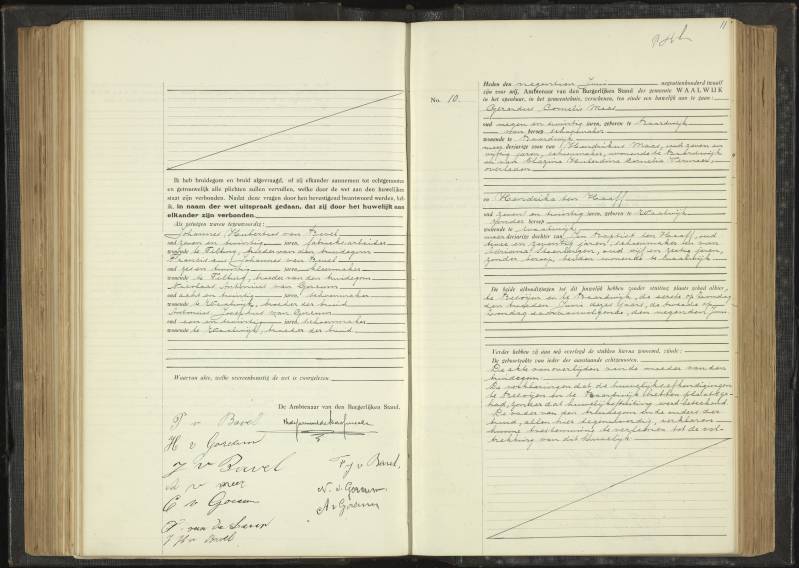 Ik heb bruidegom en bruid afgevraagd, of zij elkander aannemen tot echtgenooten
en getrouwelijk alle plichten zullen vervullen, welke door de wet aan den huwelijken
staat zijn verbonden. Nadat deze vragen door hen bevestigend beantwoord werden, heb
ik, in naam der wet uitspraak gedaan, dat zij door het huwelijk aan
elkander zijn verbonden.
Als getuigen waren tegenwoordig:
Johannes Hubertus van Bavel
oud zeven en twintig jaren, fabrieksarbeider
wonende te Tilburg, broeder van den bruidegom
Franciscus Johannes van Bavel
oud zes en twintig jaren, kleermaker
wonende te Tilburg, broeder van den bruidegom
Nicolaas Antonius van Gorcum
oud acht en twintig jaren, schoenmaker
wonende te Waalwijk, broeder der bruid
Antonius Josephus van Gorcum
oud een en twintig jaren, schoenmaker
wonende te Waalwijk, broeder der bruid
Waarvan akte, welke overeenkomstig de wet is voorgelezen
De Ambtenaar van den Burgerlijken Stand.
v Bavel
H v Gorcum
J v Bavel
F J v Bavel.
v meer
N. v. Gorcum
C v Gorcum
A v Gorcum
11
No. 10.
Heden den negentien Juni negentienhonderd twaalf
zijn voor mij, Ambtenaar van den Burgerlijken Stand der gemeente WAALWIJK
in het openbaar, in het gemeentehuis, verschenen, ten einde een huwelijk aan te gaan:
Gerardus Cornelis Maas
oud negen en twintig jaren, geboren te Baardwijk
van beroep schoenmaker
wonende te Baardwijk
meerderjarige zoon van Hendrikus Maas, oud zeven en
vijftig jaren, schoenmaker, wonende te Baardwijk
en van Huberdina Cornelia Vermeer,
overleden
en Hendrika ten Haaff
oud zeven en twintig jaren, geboren te Waalwijk
zonder beroep
wonende te Waalwijk
meerderjarige dochter van Jan Baptist ten Haaff, oud
twee en zeventig jaren, schoenmaker en van
oud vijf en zestig jaren,
zonder beroep, beiden wonende te Waalwijk
De beide afkondigingen tot dit huwelijk hebben zonder stuiting plaats gehad alhier,
en te Baardwijk, de eerste op Zondag
den tweeden Juni dezes jaars, de tweede op
Zondag daaraanvolgende, den negenden Juni
Verder hebben zij aan mij overlegd de stukken hierna genoemd, zijnde:
De geboorteakte van ieder der aanstaande echtgenooten.
De akte van overlijden van de moeder van den
bruidegom.
De verklaringen dat de huwelijksafkondigingen
en te Baardwijk hebben plaats ge-
had, zonder dat huwelijksstuiting werd beteekend
De vader van den bruidegom en de ouders der
bruid, allen hier tegenwoordig, verklaren
hunne toestemming te verleenen tot de vol-
trekking van dit huwelijk.